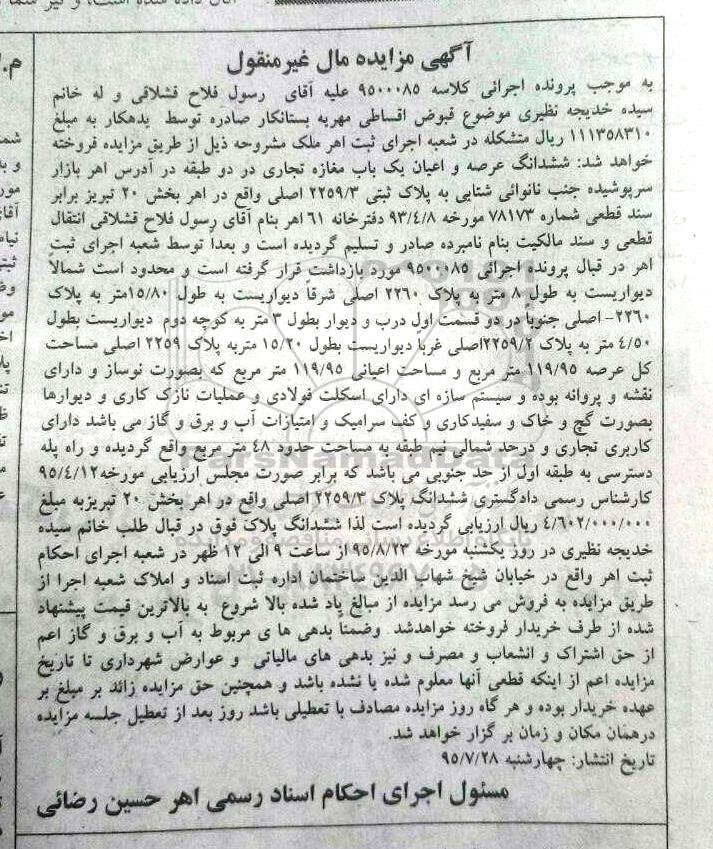 آگهی مزایده مال غیرمنقول
به موجب پرونده اجرائی کلاسه ۹۵۰۰۰۸۵ علیه آقای رسول فلاح قشلاقی و له خانم
سیده خدیجه نظیری موضوع قبوض اقساطی مهریه بستانکار صادره توسط بدهکار به مبلغ
۱۱۱۳۵۸۳۱۰ ریال متشکله در شعبه اجرای ثبت اهر ملک مشروحه ذیل از طریق مزایده فروخته
خواهد شد: ششدانگ عرصه و اعیان یک باب مغازه تجاری در دو طبقه در آدرس اهر بازار
سرپوشیده جنب نانوائی شتابی به پلاک ثبتی ۲۲۵۹/۳ اصلی واقع در اهر بخش ۲۰ تبریز برابر
سند قطعی شماره ۷۸۱۷۳ مورخه ۹۳/۴/۸ دفترخانه ۶۱ اهر بنام آقای رسول فلاح قشلاقی انتقال
قطعی و سند مالکیت بنام نامبرده صادر و تسلیم گردیده است و بعداً توسط شعبه اجرای ثبت
اهر در قبال پرونده اجرائی ۹۵۰۰۰۸۵ مورد بازداشت قرار گرفته است و محدود است شمالاً
دیواریست به طول ۸ متر به پلاک ۲۲۶۰ اصلی شرقاً دیواریست به طول ۱۵/۸۰متر به پلاک
۲۲۶۰- اصلی جنوباً در دو قسمت اول درب و دیوار بطول ۳ متر به کوچه دوم دیواریست بطول
۴/۵۰ متر به پلاک ۲۲۵۹/۲اصلی غرباً دیواریست بطول ۱۵/۲۰ متربه پلاک ۲۲۵۹ اصلی مساحت
کل عرصه ۱۱۹/۹۵ متر مربع و مساحت اعیانی ۱۱۹/۹۵ متر مربع که بصورت نوساز و دارای
نقشه و پروانه بوده و سیستم سازه ای دارای اسکلت فولادی و عملیات نازک کاری و دیوارها
بصورت گچ و خاک و سفیدکاری و کف سرامیک و امتیازات آب و برق و گاز می باشد دارای
کاربری تجاری و درحد شمالی نیم طبقه به مساحت حدود ۴۸ متر مربع واقع گردیده و راه پله
دسترسی به طبقه اول از حد جنوبی می باشد که برابر صورت مجلس ارزیابی مورخه۹۵/۴/۱۲
کارشناس رسمی دادگستری ششدانگ پلاک ۲۲۵۹/۳ اصلی واقع در اهر بخش ۲۰ تبریزبه مبلغ
۴/۶۰۲/۰۰۰/۰۰۰ ریال ارزیابی گردیده است لذا ششدانگ پلاک فوق در قبال طلب خانم سیده
خدیجه نظیری در روز یکشنبه مورخه ۹۵/۸/۲۳ از ساعت ۹ الی ۱۲ ظهر در شعبه اجرای احکام
ثبت اهر واقع در خیابان شیخ شهاب الدین ساختمان اداره ثبت اسناد و املاک شعبه اجرا از
طریق مزایده به فروش می رسد مزایده از مبالغ یاد شده بالا شروع به بالاترین قیمت پیشنهاد
شده از طرف خریدار فروخته خواهدشد. وضمناً بدهی ها ی مربوط به آب و برق و گاز اعم
از حق اشتراک و انشعاب و مصرف و نیز بدهی های مالیاتی و عوارض شهرداری تا تاریخ
مزایده اعم از اینکه قطعی آنها معلوم شده یا نشده باشد و همچنین حق مزایده زائد بر مبلغ بر
عهده خریدار بوده و هر گاه روز مزایده مصادف با تعطیلی باشد روز بعد از تعطیل جلسه مزایده
درهمان مکان و زمان بر گزار خواهد شد.
تاریخ انتشار: چهارشنبه ۹۵/۷/۲۸
مسئول اجرای احکام اسناد رسمی اهر حسین رضائی